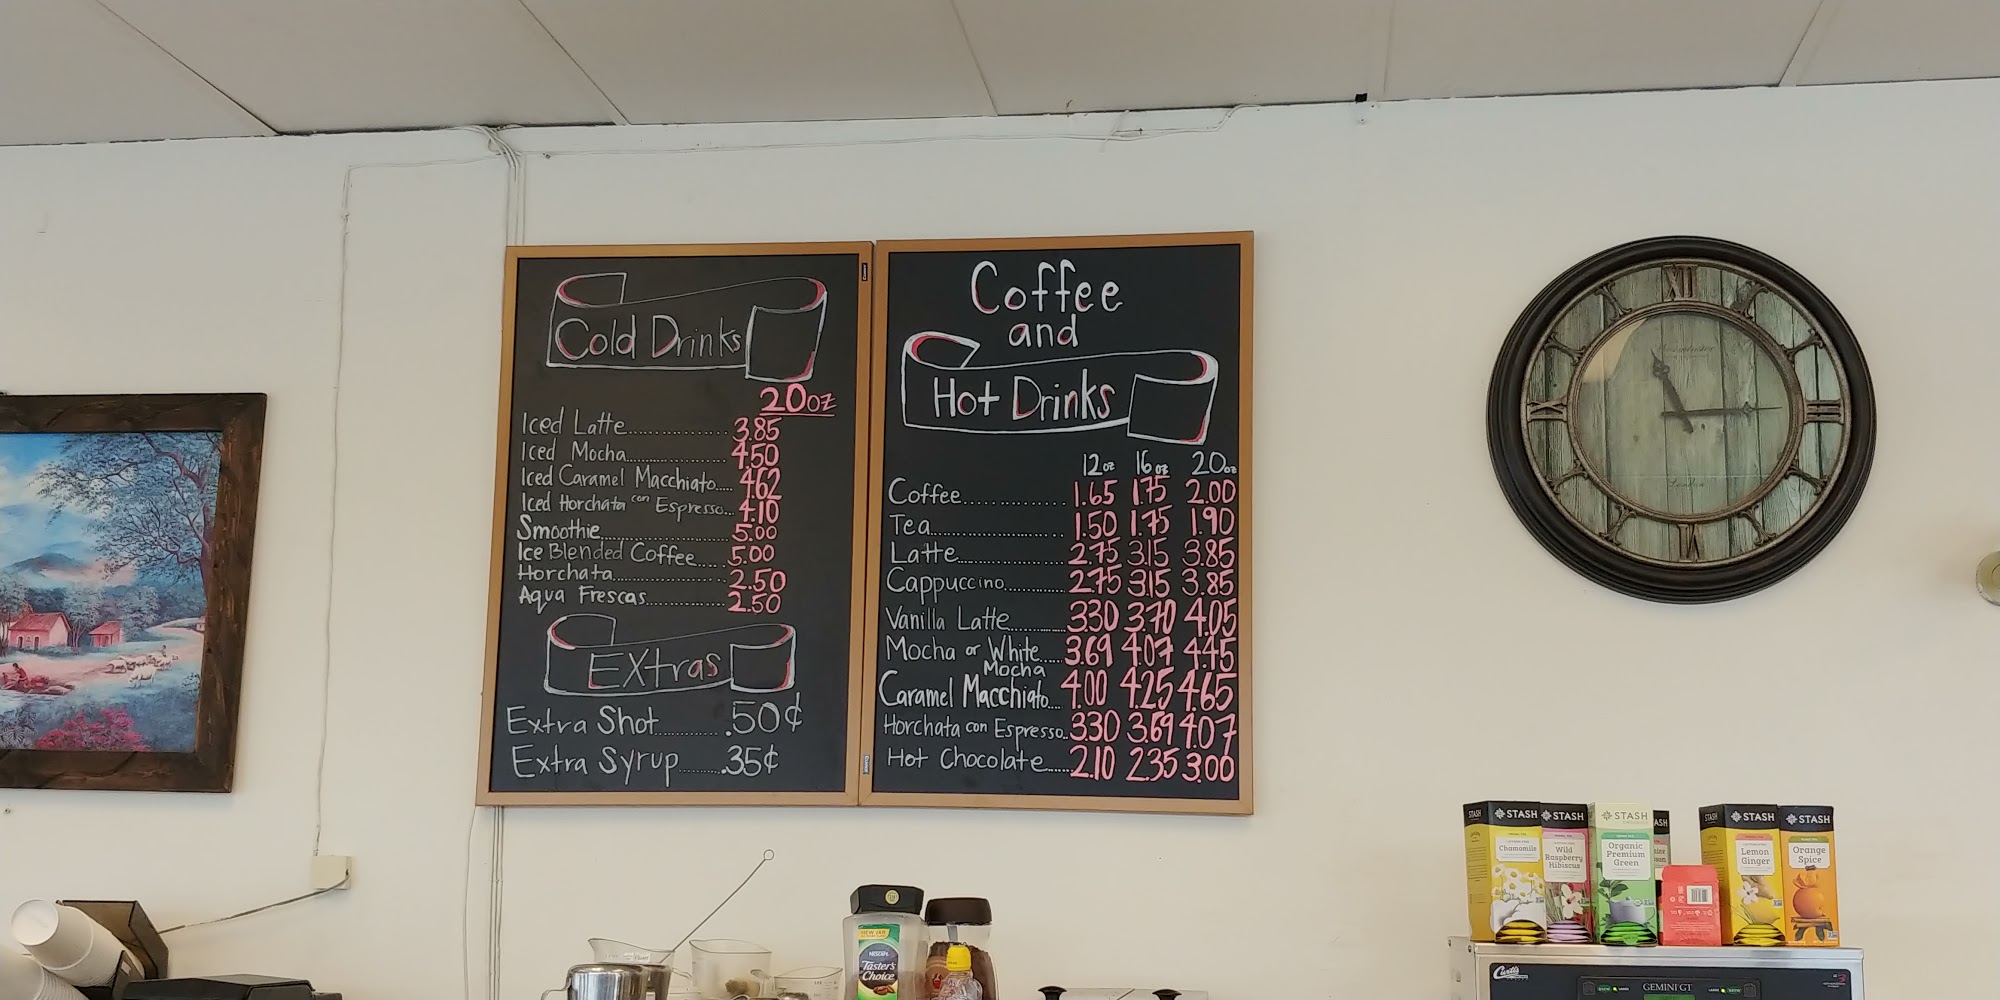 Cold Drinks
20oz
Iced Latte 3.85
Iced Mocha 4.50
Iced Caramel Macchiato 4.62
Iced Horchata con Espresso 4.10
Smoothie 5.00
Ice Blended Coffee 5.00
Horchata 2.50
Aqua Frescas 2.50
Extras
Extra Shot .50¢
Extra Syrup .35¢
Coffee
and
Hot Drinks
12oz 16oz 20oz
Coffee 1.65 1.75 2.00
Tea 1.50 1.75 1.90
Latte 2.75 3.15 3.85
Cappuccino 2.75 3.15 3.85
Vanilla Latte 3.30 3.70 4.05
Mocha or White Mocha 3.69 4.07 4.45
Caramel Macchiato 4.00 4.25 4.65
Horchata con Espresso 3.30 3.69 4.07
Hot Chocolate 2.10 2.35 3.00
XII
III
VI
IX
London
STASH
Chamomile
STASH
Wild
Raspberry
Hibiscus
STASH
Organic
Premium
Green
STASH
STASH
Lemon
Ginger
STASH
Orange
Spice
NESCAFE
Taster's
Choice
Curtis
GEMINI GT